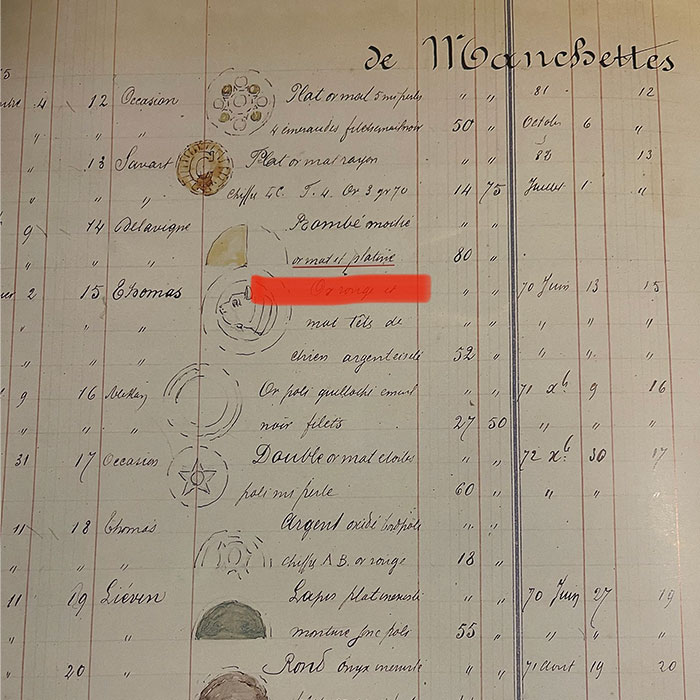 de Manchettes
5
4 12 Occasion Plat or mat 5 mi perles " " 81 12
" " " 4 émeraudes filets email noir 50 " Octobre 6 "
13 Savart Plat or mat rayon " " 83 13
" " " chiffre 4 C. T. 4. Or 3 gr 70 14 75 Juillet 1 "
9 14 Delavigne Bombé moitié " "
" " " or mat et platine 80 "
2 15 Thomas " " 70 Juin 13 15
" " " mat têts de " " " " "
" " " chien argent ciselé 52 " " " "
9 16 Or poli guilloché email " " 71 Xb. 9 16
" " " noir filets 27 50 " " "
31 17 Occasion Double or mat etoiles " " 72 Xb. 30 17
" " " poli mi perle 60 " " "
11 18 Thomas Argent oxidé bord poli " "
" " " chiffre A B. or rouge 18 "
11 19 Liéven Lapis plat incrusté " " 70 Juin 27 19
" " monture jonc poli 55 " " " "
" 20 Rond onyx incrusté " " 71 Aout 19 20